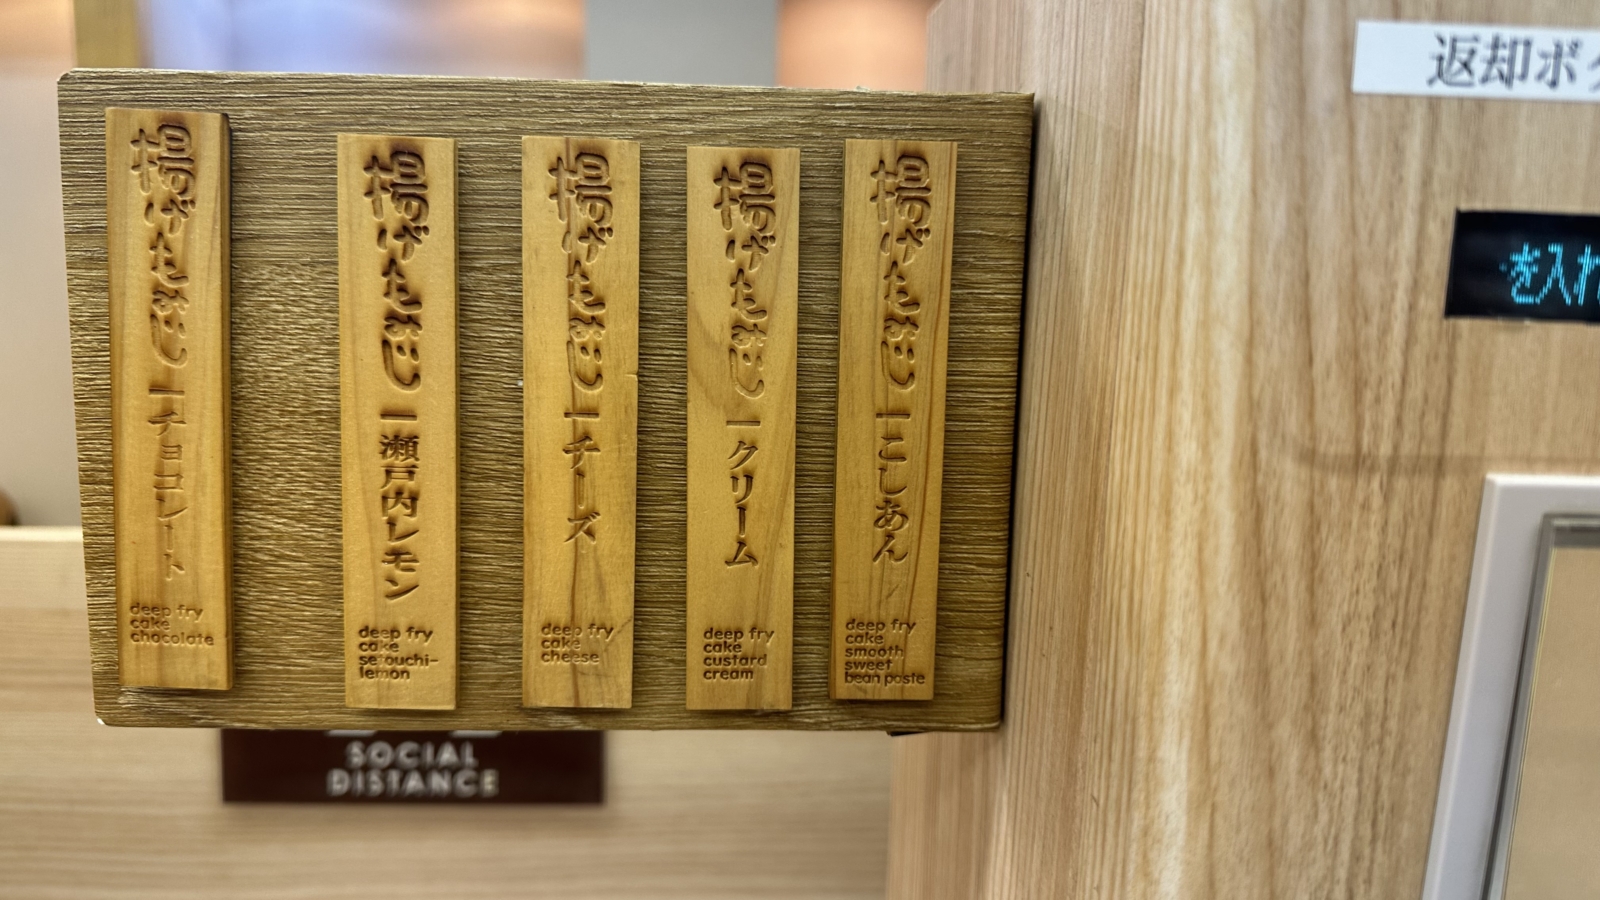 揚げもみじ 一 こしあん
deep fry
cake
smooth
sweet
bean paste
揚げもみじ 一 クリーム
deep fry
cake
custard
cream
揚げもみじ 一 チーズ
deep fry
cake
cheese
揚げもみじ 一 瀬戸内レモン
deep fry
cake
setouchi-
lemon
揚げもみじ 一 チョコレート
deep fry
cake
chocolate
SOCIAL
DISTANCE
返却ポ
を入れ